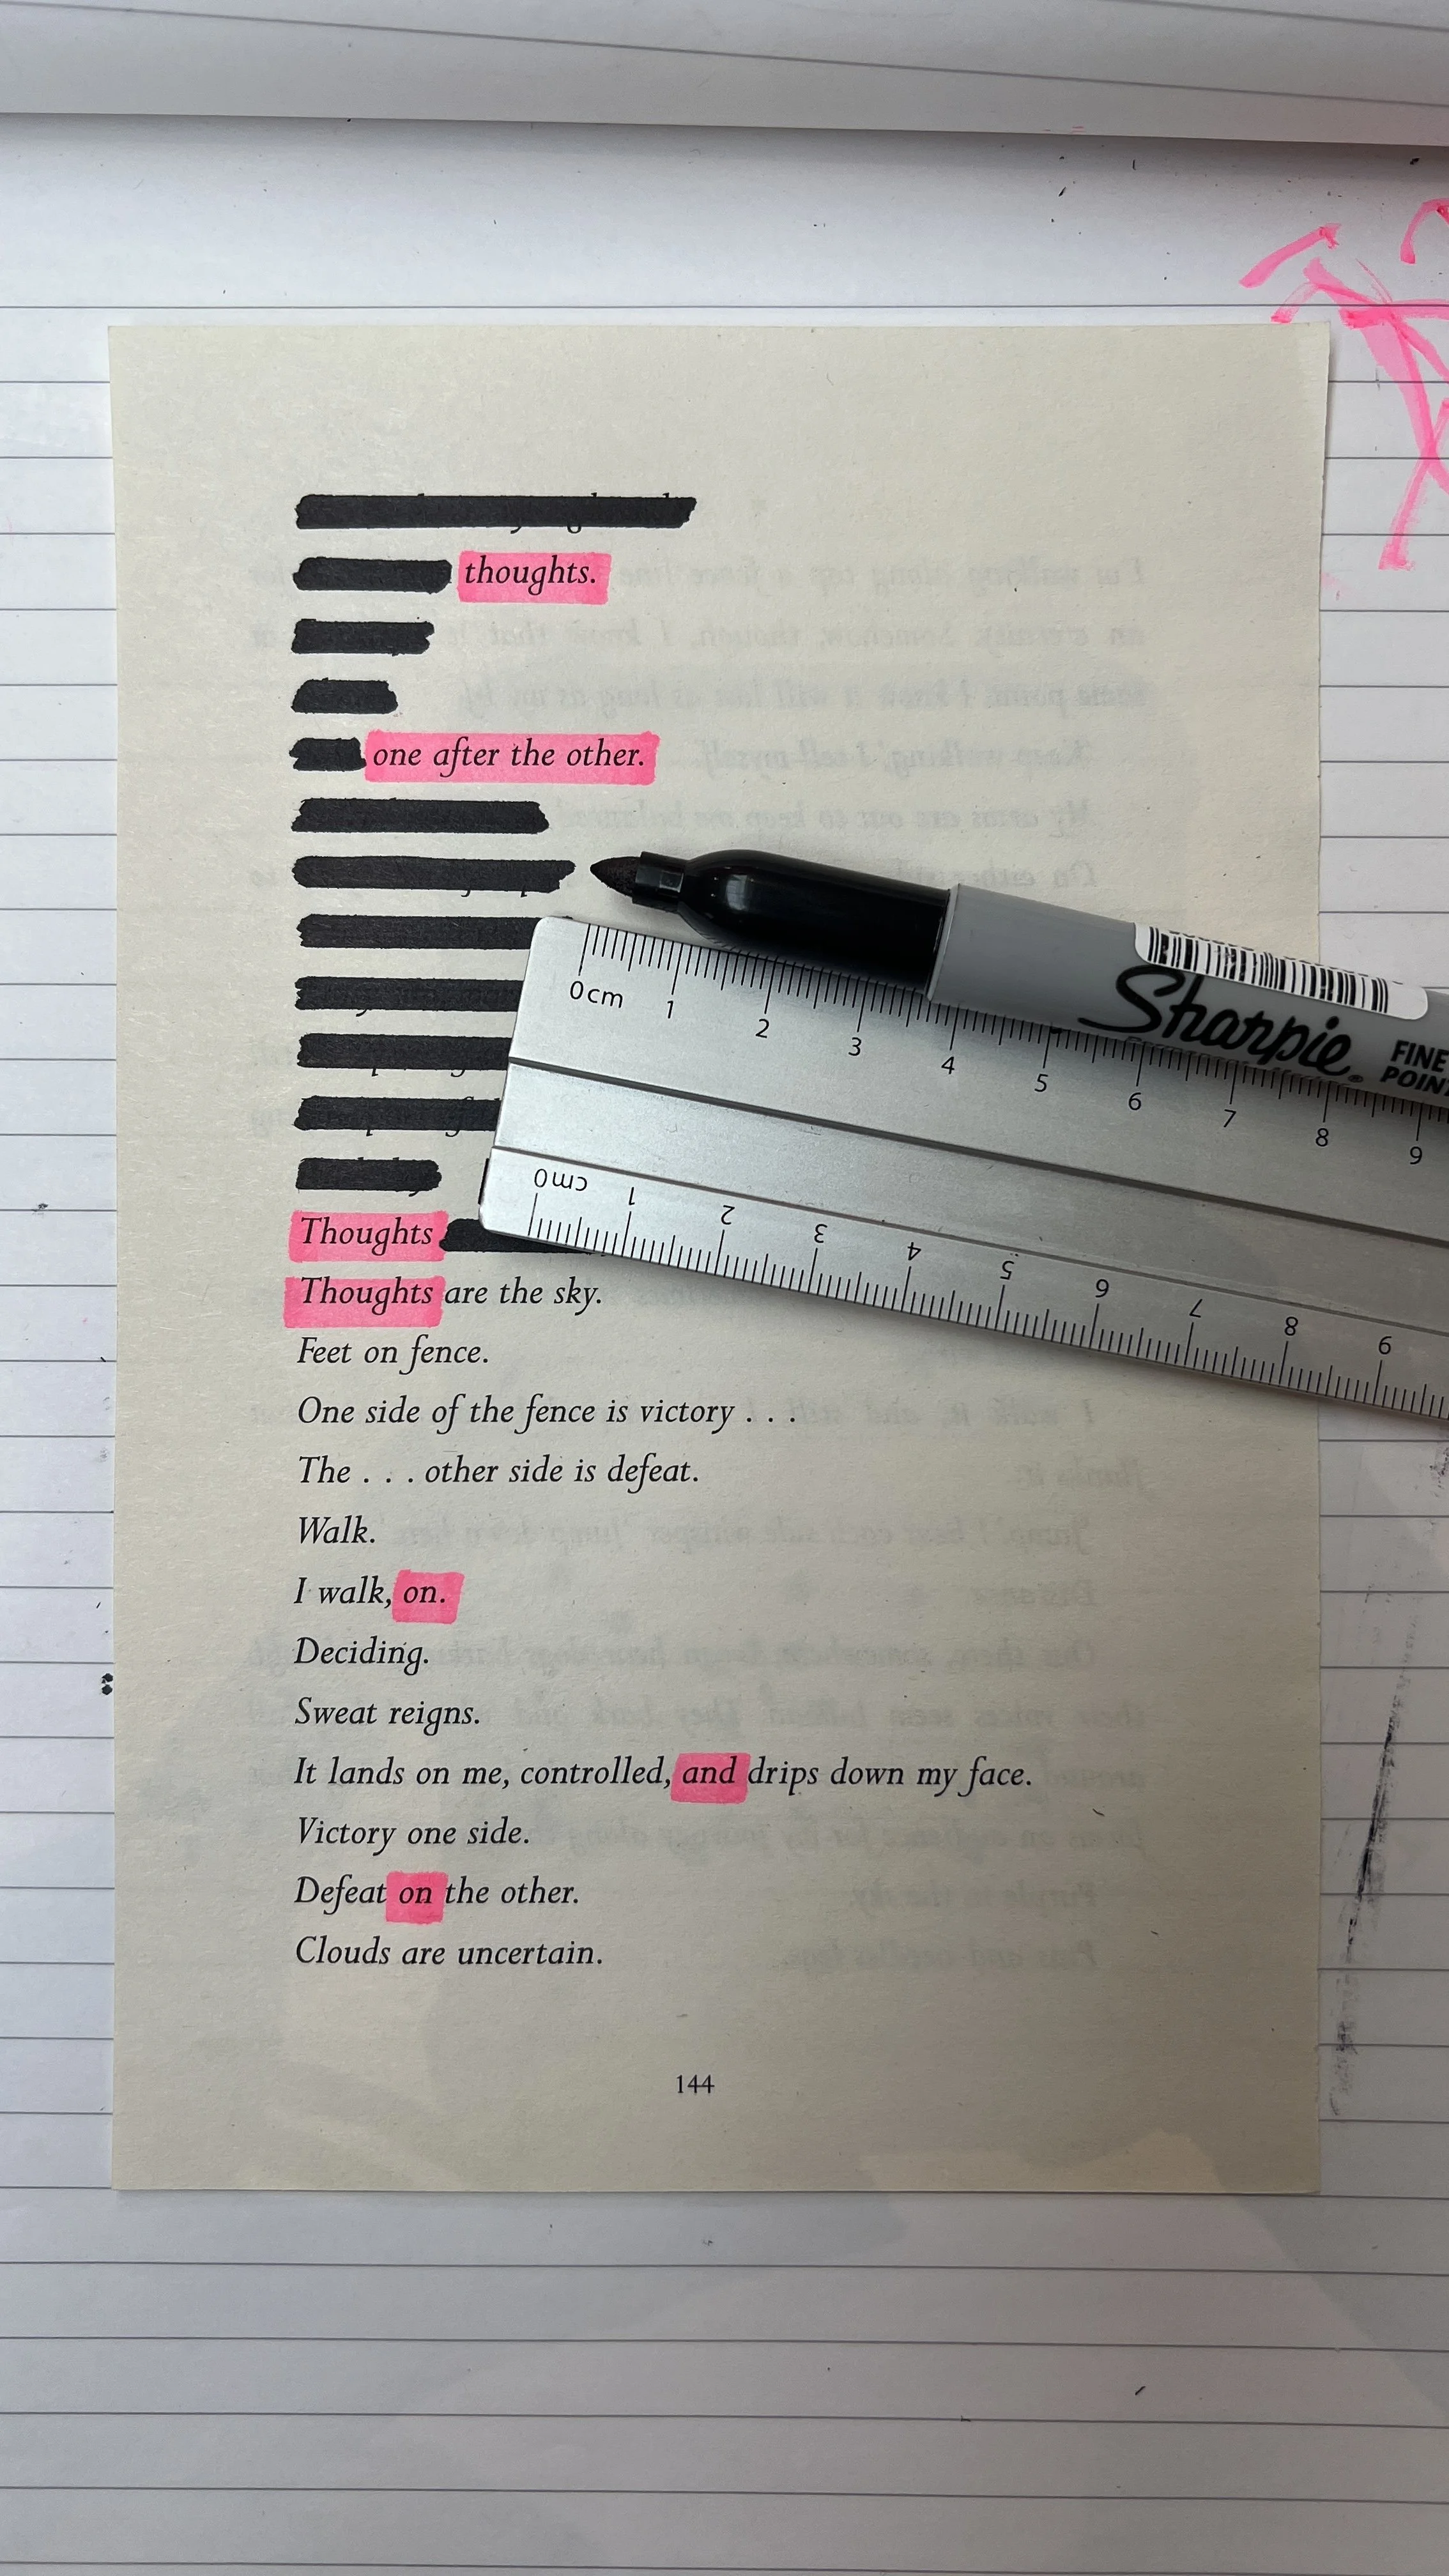 thoughts.
one after the other.
Thoughts
Thoughts are the sky.
Feet on fence.
One side of the fence is victory . . .
The . . . other side is defeat.
Walk.
I walk, on.
Deciding.
Sweat reigns.
It lands on me, controlled, and drips down my face.
Victory one side.
Defeat on the other.
Clouds are uncertain.
144
Sharpie
FINE
POINT
0cm 1 2 3 4 5 6 7 8 9
0 cm 1 2 3 4 5 6 7 8 9